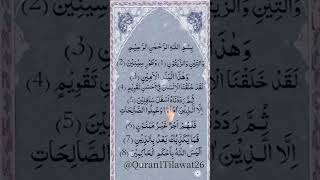 بِسْمِ اللَّهِ الرَّحْمَٰنِ الرَّحِيمِ
وَالتِّينِ وَالزَّيْتُونِ (1) وَطُورِ سِينِينَ (2)
وَهَٰذَا الْبَلَدِ الْأَمِينِ (3)
لَقَدْ خَلَقْنَا الْإِنْسَانَ فِي أَحْسَنِ تَقْوِيمٍ (4)
ثُمَّ رَدَدْنَاهُ أَسْفَلَ سَافِلِينَ (5)
إِلَّا الَّذِينَ آمَنُوا وَعَمِلُوا الصَّالِحَاتِ
فَلَهُمْ أَجْرٌ غَيْرُ مَمْنُونٍ (6)
فَمَا يُكَذِّبُكَ بَعْدُ بِالدِّينِ (7)
أَلَيْسَ اللَّهُ بِأَحْكَمِ الْحَاكِمِينَ (8)
@Quran1Tilawat26